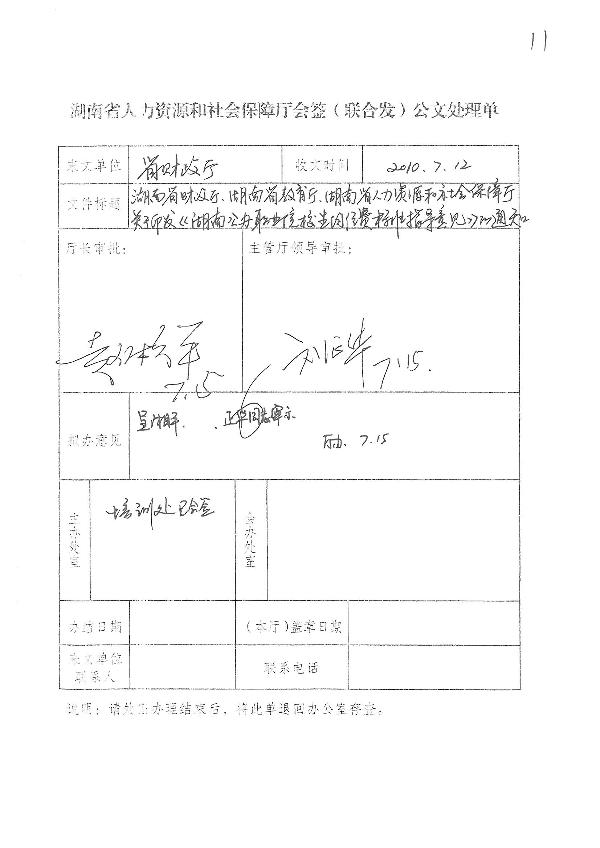 11
湖南省人力资源和社会保障厅会签（联合发）公文处理单
来文单位 省财政厅 收文时间 2010.7.12
文件标题 湖南省财政厅、湖南省教育厅、湖南省人力资源和社会保障厅
关于印发《湖南公办职业院校生均经费标准指导意见》的通知
厅长审批： 主管厅领导审批：
7.15 7.15.
拟办意见 呈湘平、正华同志审示
7.15
主办处室 培训处已会签 会办处室
办结日期 （本厅）盖章日期
来文单位联系人 联系电话
说明：请处室办理结束后，将此单退回办公室存查。